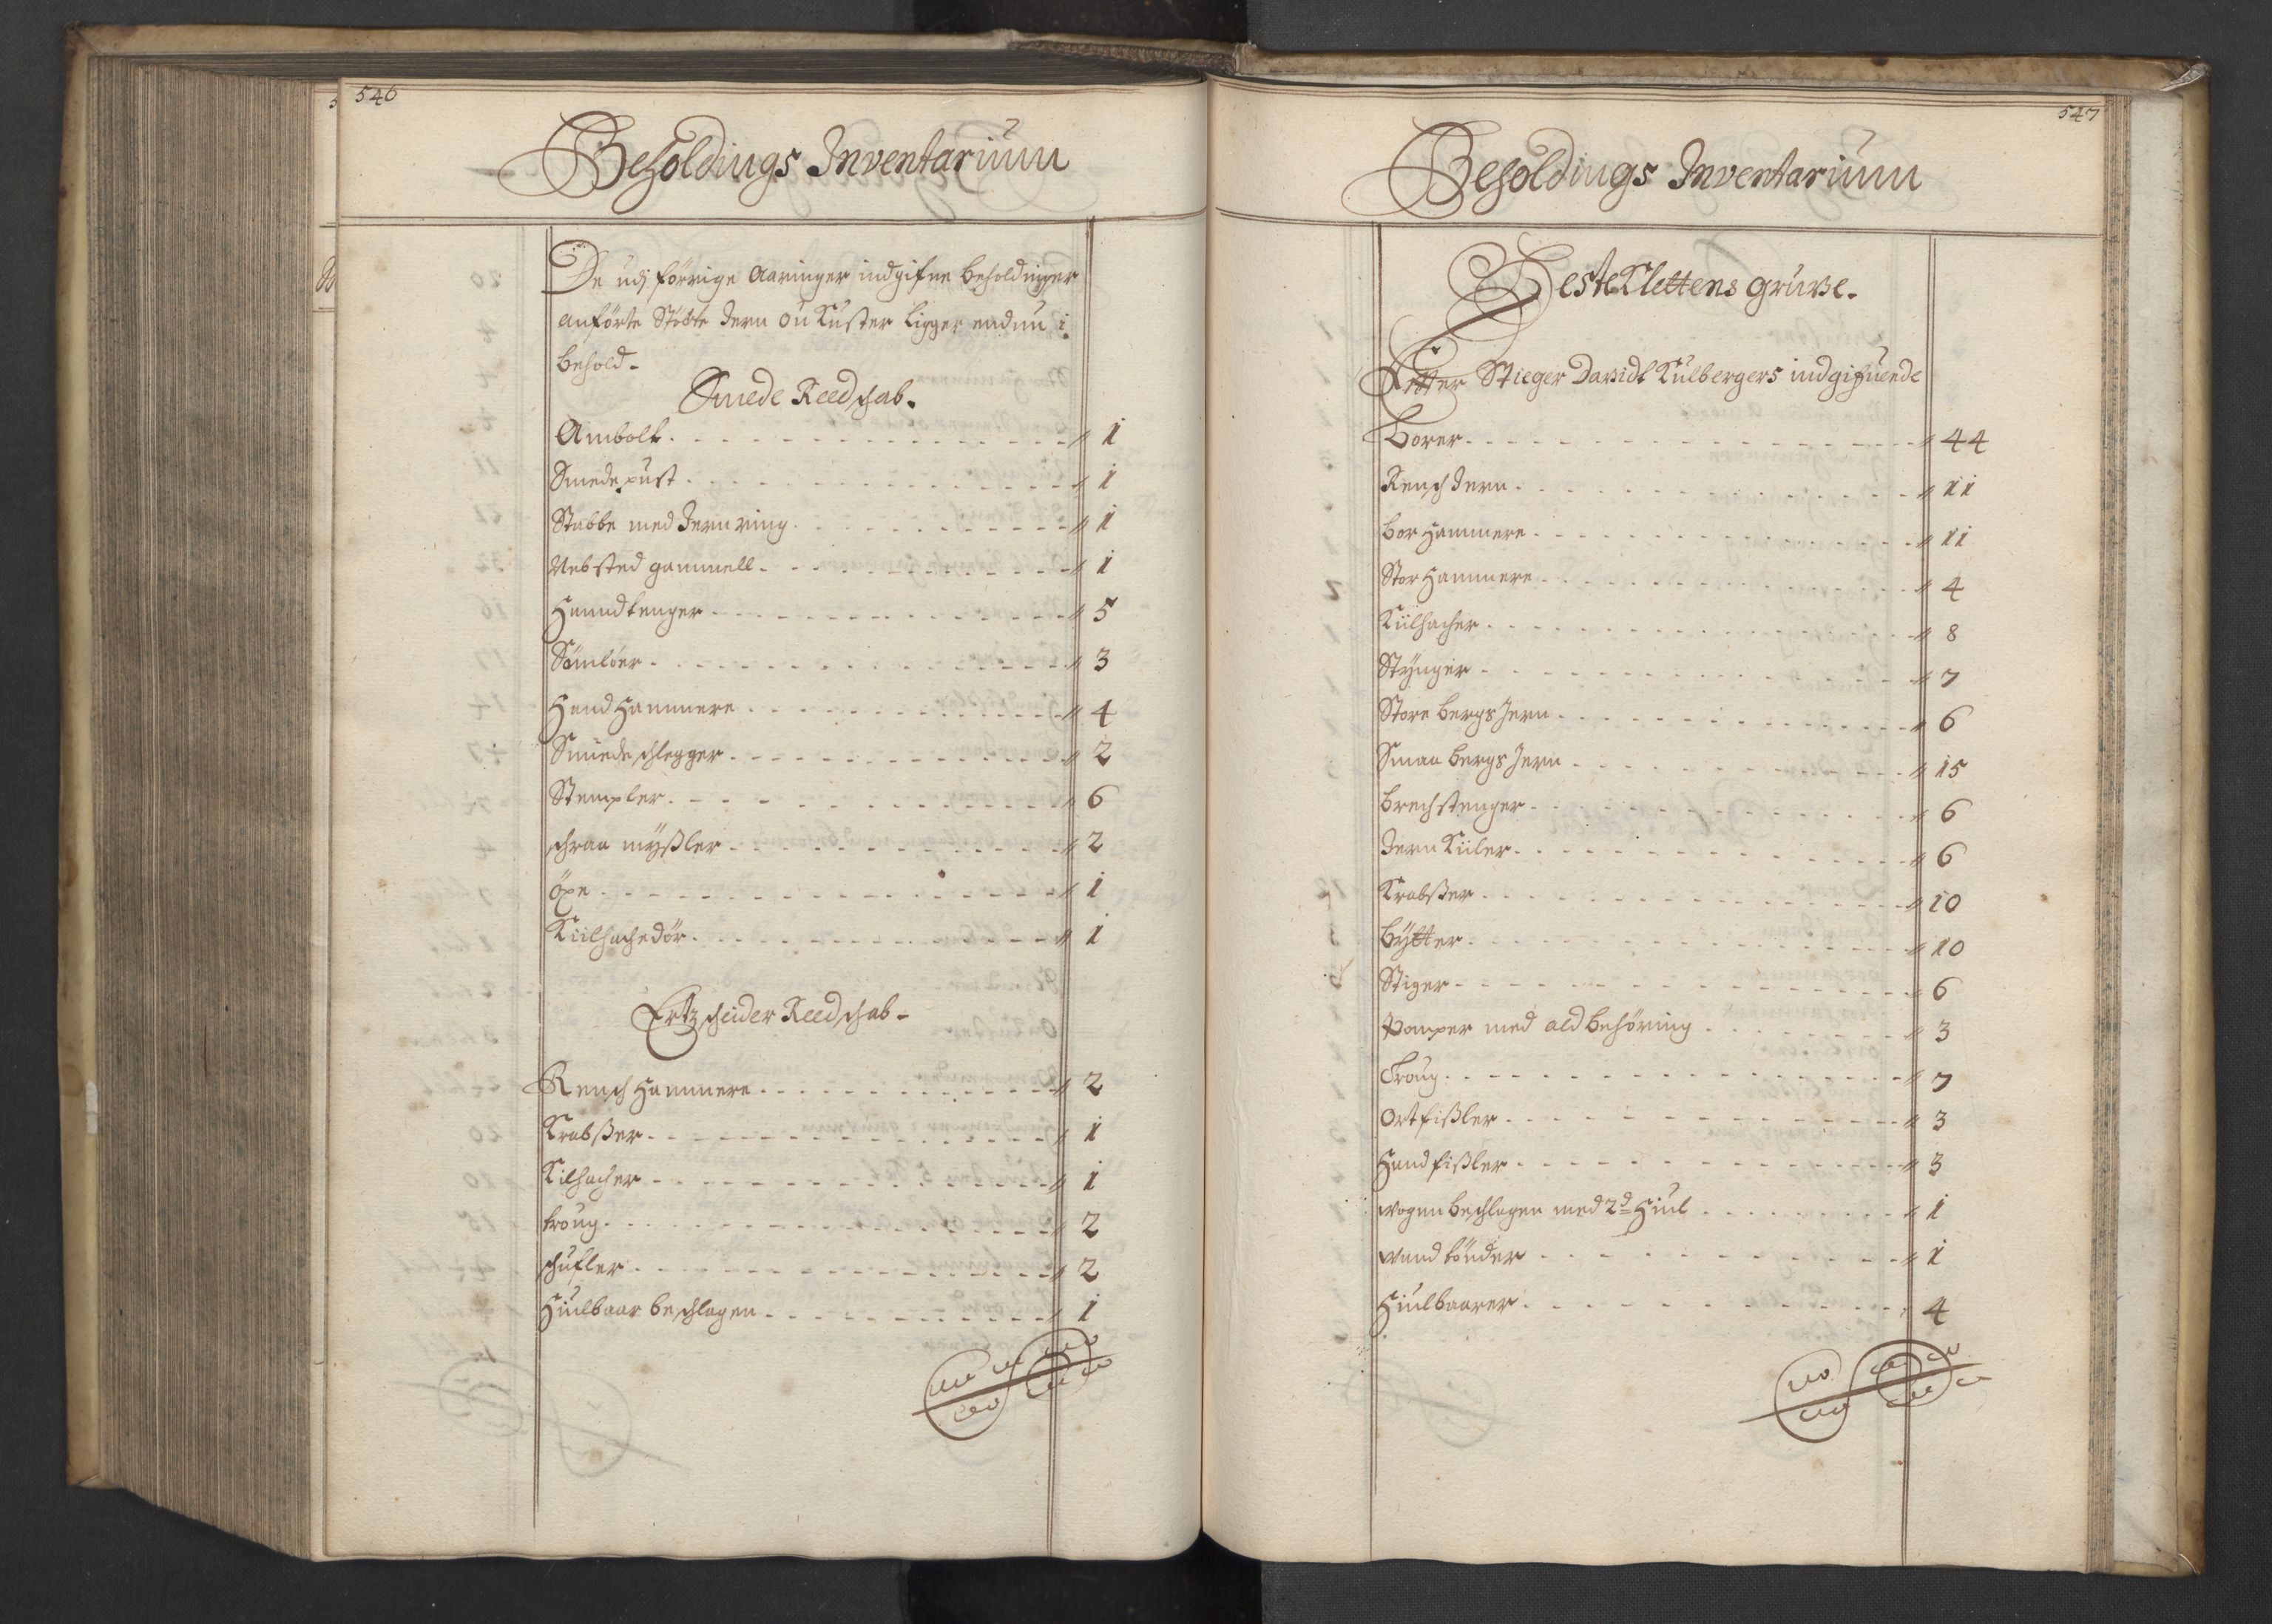 546
Beholdings Inventarium
De udj förrige Aaringer indgifne beholdninger
anförte Stötte Jern ou Kuster ligger endnu i
behold.
Smede Reedschab.
Ambolt. 1
Smedepust. 1
Stabbe med Jernring. 1
Nebsted gammell. 1
Haandtenger 5
Sömlöer 3
Hand Hammere 4
Smiede schlegger 2
Stempler. 6
schraa mÿßler 2
öxe 1
Kiilhachedör. 1
Ertzscheider Reedschab.
Rensch Hammere 2
Krabßer 1
Kilhacher 1
troug. 2
schufler 2
Hiulbaar beschlagen 1
547
Beholdings Inventarium
HesteKlettens Gruve.
Efter Stieger Davidt Kulbergers indgifuende
borer 44
Rensch Jern. 11
bor Hammere 11
Stor Hammere 4
Kiilhacher 8
Stÿnger 7
Store bergs Jern 6
Smaa bergs Jern 15
brechstenger 6
Jern Kiiler 6
Krabßer 10
bÿtter 10
Stiger 6
Pomper med ald behöring 3
Troug 7
Ortfißler 3
Handfißler 3
wogn beschlagen med 2d Hiul 1
vand tönder 1
Hiulbaarer 4